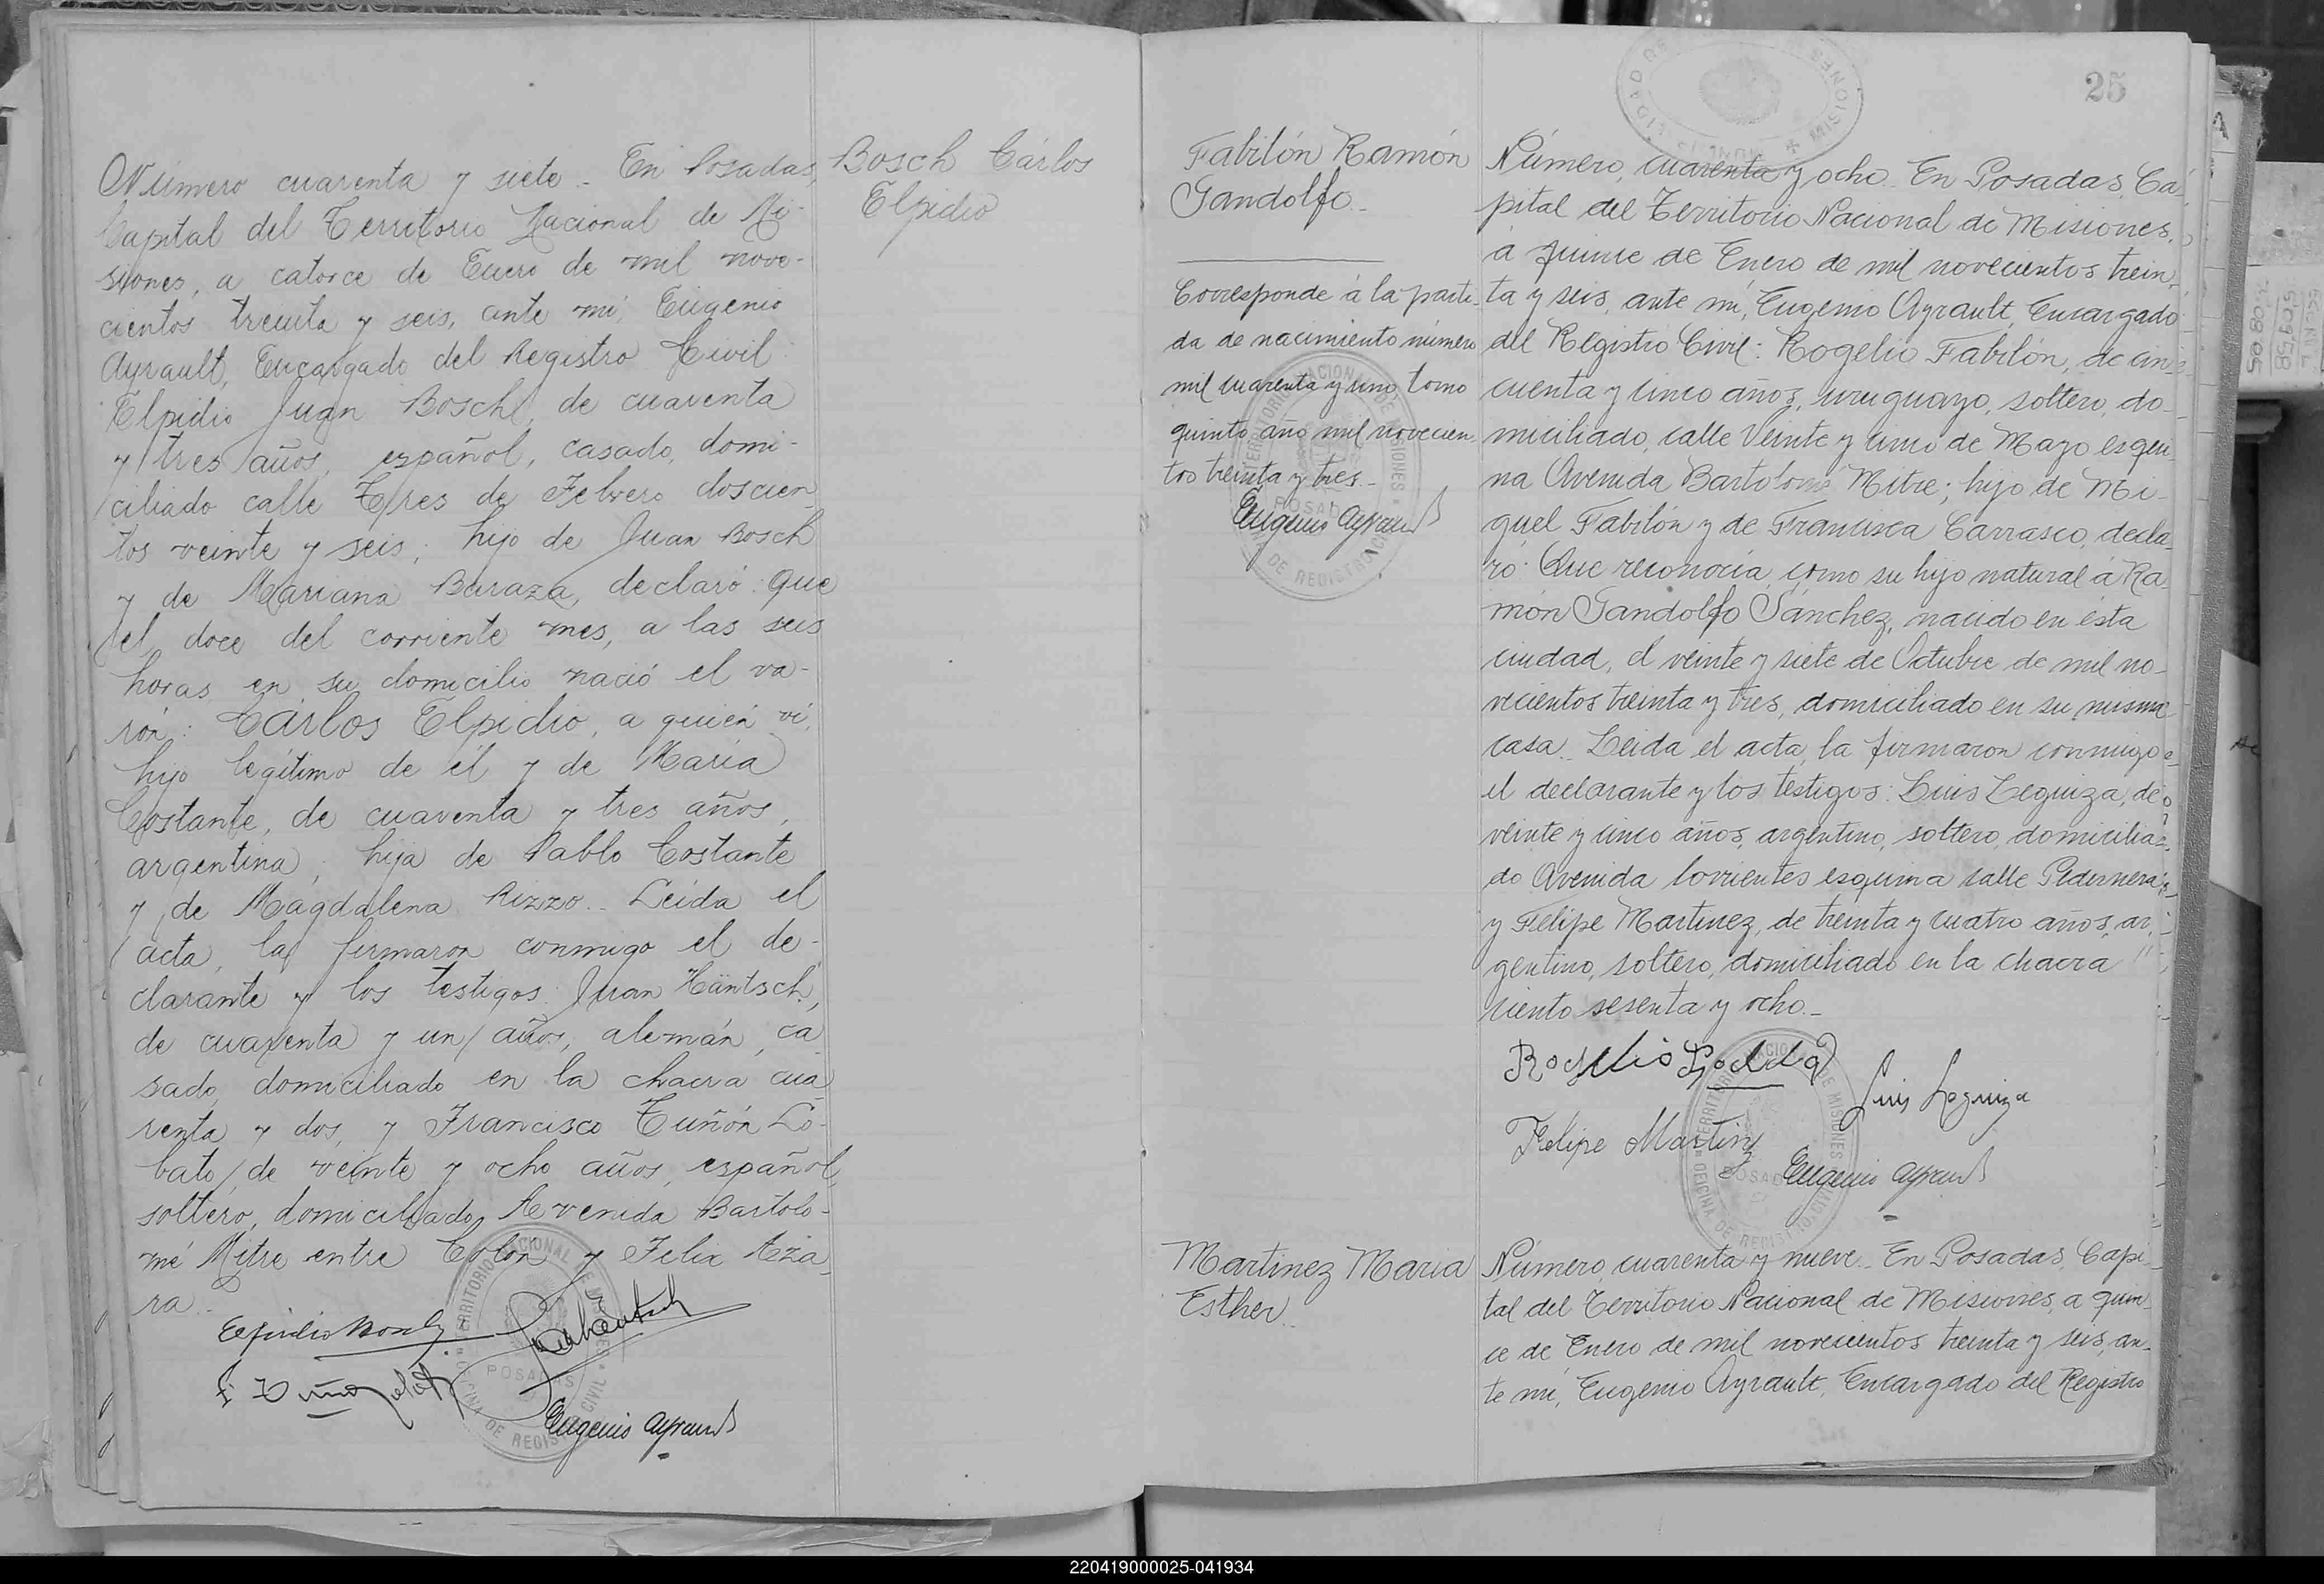 Número cuarenta y siete. En Posadas,
Capital del Territorio Nacional de Mi-
siones, a catorce de Enero de mil nove-
cientos treinta y seis, ante mí, Eugenio
Ayrault, Encargado del Registro Civil:
Elpidio Juan Bosch, de cuarenta
y tres años, español, casado, domi-
ciliado calle Tres de Febrero doscien
tos veinte y seis; hijo de Juan Bosch
y de Mariana Baraza, declaró: que
el doce del corriente mes, a las seis
horas en su domicilio nació el va-
rón: Cárlos Elpidio, a quien ví,
hijo legítimo de él y de María
Costante, de cuarenta y tres años,
argentina, hija de Pablo Costante
y de Magdalena Rizzo. Leída el
acta, la firmaron conmigo el de-
clarante y los testigos: Juan Häntsch,
de cuarenta y un años, alemán, ca
sado, domiciliado en la chacra cua
renta y dos, y Francisco Tuñón Lo-
bato, de veinte y ocho años, español,
soltero, domiciliado Avenida Bartolo-
mé Mitre entre Colón y Felix Aza-
ra.
Bosch Cárlos
Elpidio
Elpidio Bosch
Eugenio Ayrault
TERRITORIO NACIONAL DE MISIONES
POSADAS
OFICINA DE REGISTRO CIVIL
25
Fabilón Ramón
Gandolfo.
Corresponde á la parti-
da de nacimiento número
mil cuarenta y uno, tomo
quinto año mil novecien
tos treinta y tres.
Eugenio Ayrault
TERRITORIO NACIONAL DE MISIONES
POSADAS
OFICINA DE REGISTRO CIVIL
MISIONES
Número, cuarenta y ocho. En Posadas, Ca-
pital del Territorio Nacional de Misiones,
á quince de Enero de mil novecientos trein,
ta y seis, ante mí, Eugenio Ayrault, Encargado
del Registro Civil: Rogelio Fabilón, de cin-
cuenta y cinco años, uruguayo, soltero, do-
miciliado, calle Veinte y cinco de Mayo esqui-
na Avenida Bartolomé Mitre; hijo de Mi-
guel Fabilón y de Francisca Carrasco, decla-
ró: Que reconocía como su hijo natural á Ra
món Gandolfo Sánchez, nacido en ésta
ciudad, el veinte y siete de Octubre de mil no-
vecientos treinta y tres, domiciliado en su misma
casa. Leída el acta, la firmaron conmigo
el declarante y los testigos: Luis Leguiza, de
veinte y cinco años, argentino, soltero, domicilia-
do Avenida Corrientes esquina calle Pedernera,
y Felipe Martinez, de treinta y cuatro años, ar,
gentino, soltero, domiciliado en la chacra
ciento sesenta y ocho.
Luis Leguiza
Felipe Martinz
Eugenio Ayrault
TERRITORIO NACIONAL DE MISIONES
POSADAS
OFICINA DE REGISTRO CIVIL
Martinez Maria
Esther
Número, cuarenta y nueve. En Posadas, Capi-
tal del Territorio Nacional de Misiones, a quin-
ce de Enero de mil novecientos treinta y seis, an-
te mí, Eugenio Ayrault, Encargado del Registro
220419000025-041934